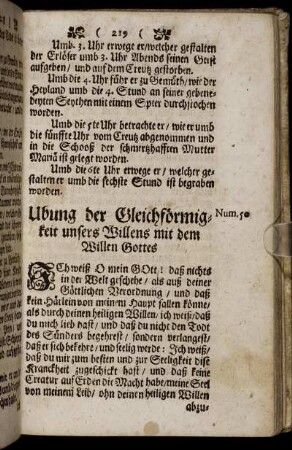 ( 219 )
Umb. 3. Uhr erwege er/welcher gestalten
der Erlöser umb 3. Uhr Abends seinen Geist
aufgeben/ und auf dem Creutz gestorben.
Umb die 4. Uhr führ er zu Gemüth/wie der
Heyland umb die 4. Stund an seiner gebene-
deyten Seythen mit einem Sper durchstochen
worden.
Umb die 5te Uhr betrachte er/ wie er umb
die fünffte Uhr vom Creutz abgenommen und
in die Schooß der schmertzhafften Mutter
Mariä ist gelegt worden.
Umb die 6te Uhr erwege er/ welcher ge-
stalten er umb die sechste Stund ist begraben
worden.
Ubung der Gleichförmig- Num. 50
keit unsers Willens mit dem
Willen Gottes
ICh weiß O mein GOtt! daß nichts
in der Welt geschehe/ als auß deiner
Göttlichen Verordnung / und daß
kein Härlein von meinem Haupt fallen könne/
als durch deinen heiligen Willen/ ich weiß/daß
du mich lieb hast/ und daß du nicht den Todt
des Sünders begehrest / sondern verlangest/
daß er sich bekehre/ und seelig werde: Ich weiß/
daß du mir zum besten und zur Seeligkeit dise
Kranckheit zugeschickt hast / und daß keine
Creatur auf Erden die Macht habe/meine Seel
von meinem Leib/ ohn deinen heiligen Willen
abzu-